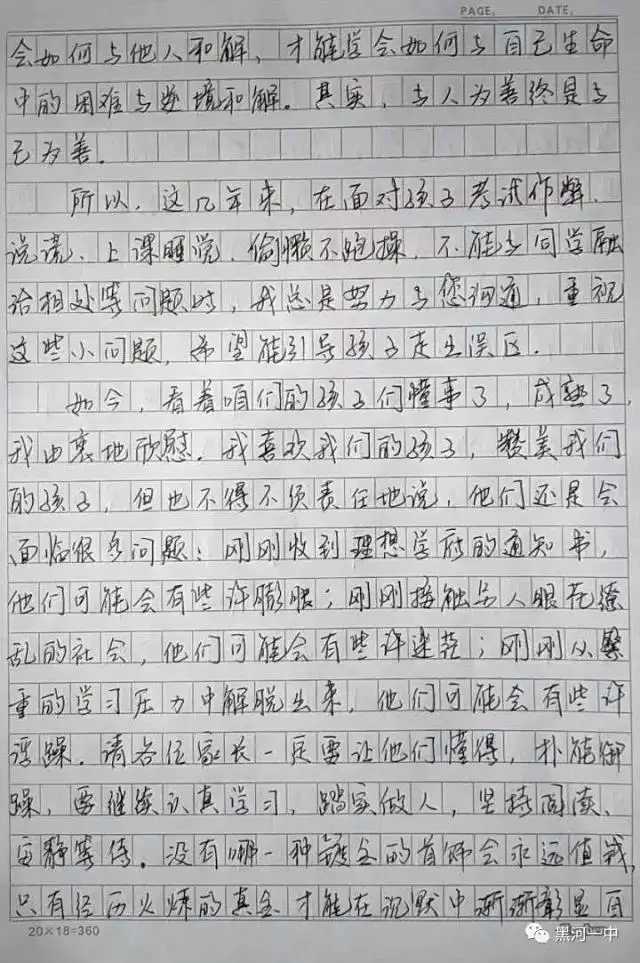 PAGE. DATE.
会如何与他人和解，才能学会如何与自己生命
中的困难与逆境和解。其实，与人为善终是与
己为善。
所以，这几年来，在面对孩子考试作弊、
说谎、上课睡觉、偷懒不跑操、不能与同学融
洽相处等问题时，我总是努力与您沟通，重视
这些小问题，希望能引导孩子走出误区。
如今，看着咱们的孩子们懂事了，成熟了，
我由衷地欣慰。我喜欢我们的孩子，赞美我们
的孩子，但也不得不负责任地说，他们还是会
面临很多问题：刚刚收到理想学府的通知书，
他们可能会有些许膨胀；刚刚接触令人眼花缭
乱的社会，他们可能会有些许迷茫；刚刚从繁
重的学习压力中解脱出来，他们可能会有些许
浮躁。请各位家长一定要让他们懂得，朴能御
躁，要继续认真学习，踏实做人，坚持阅读、
安静等待。没有哪一种镀金的首饰会永远值钱，
只有经历火炼的真金才能在沉默中渐渐彰显自
20×18=360
黑河一中